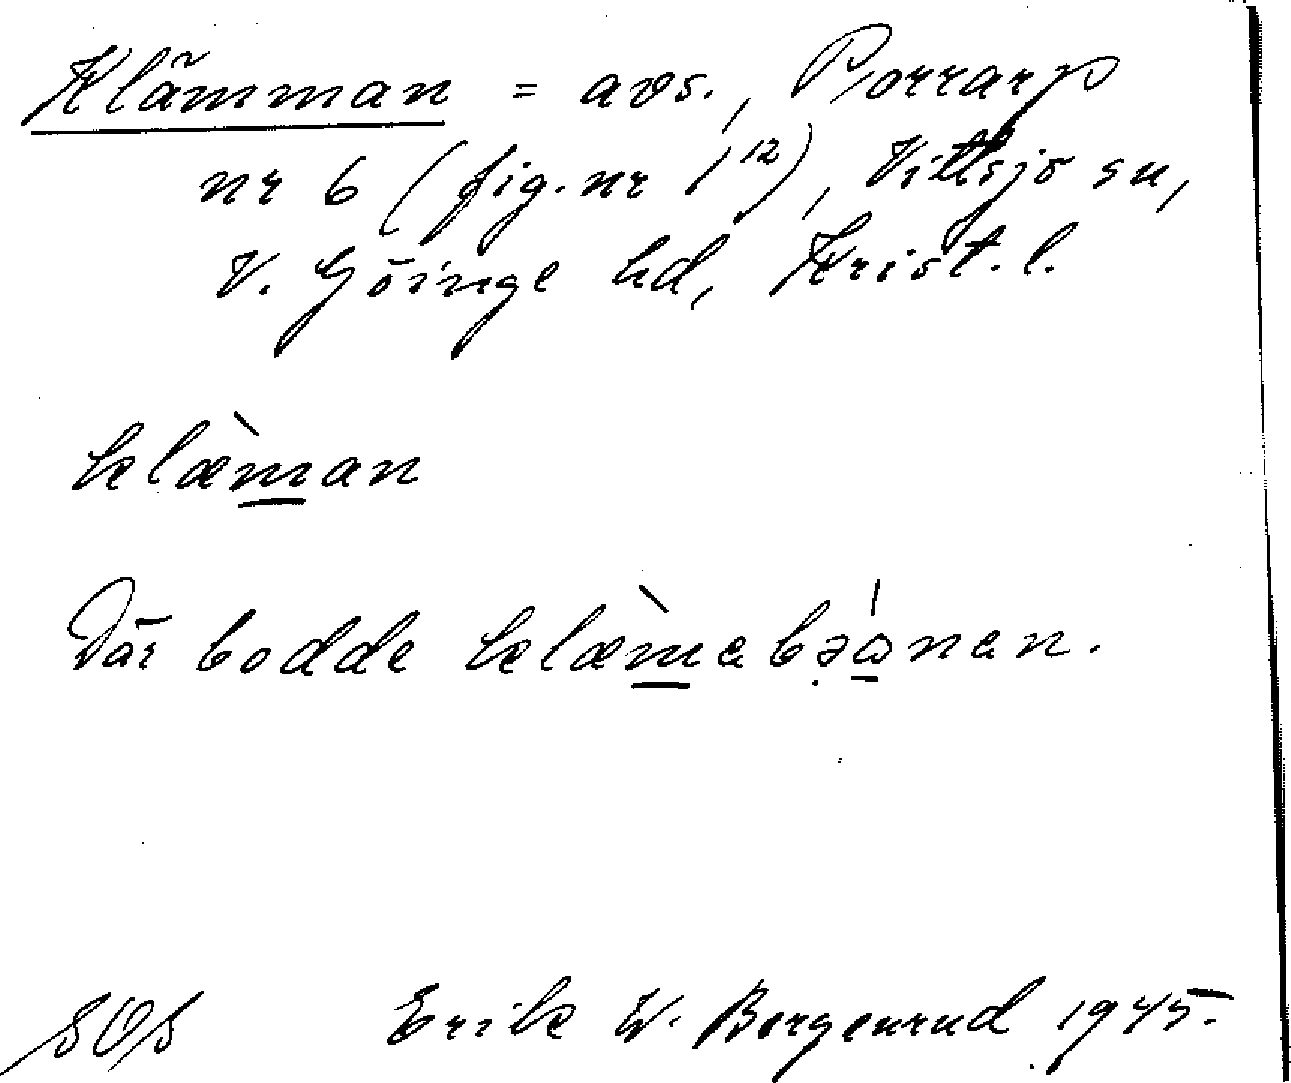 Klämman = avs., Porrarp
nr 6 (fig. nr 1¹²), Vittsjö sn,
V. Göinge hd, Krist. l.
klæ̀man
Där bodde klæ̀mabǝánen.
SOS Erik W. Bergenrud 1945.